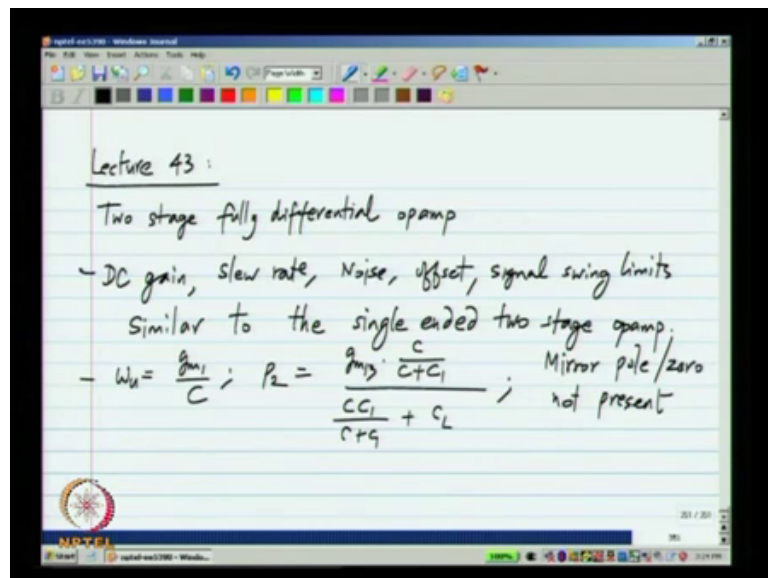 nptel-ee5390 - Windows Journal
File Edit View Insert Actions Tools Help
Page Width
B I
Lecture 43 :
Two stage fully differential opamp
- DC gain, slew rate, Noise, offset, signal swing limits
similar to the single ended two stage opamp.
- ωu = gm1 / C ; p2 = (gm13 · C/(C+C1)) / (CC1/(C+C1) + CL) ; Mirror pole/zero
not present
NPTEL
Start nptel-ee5390 - Windo...
100%